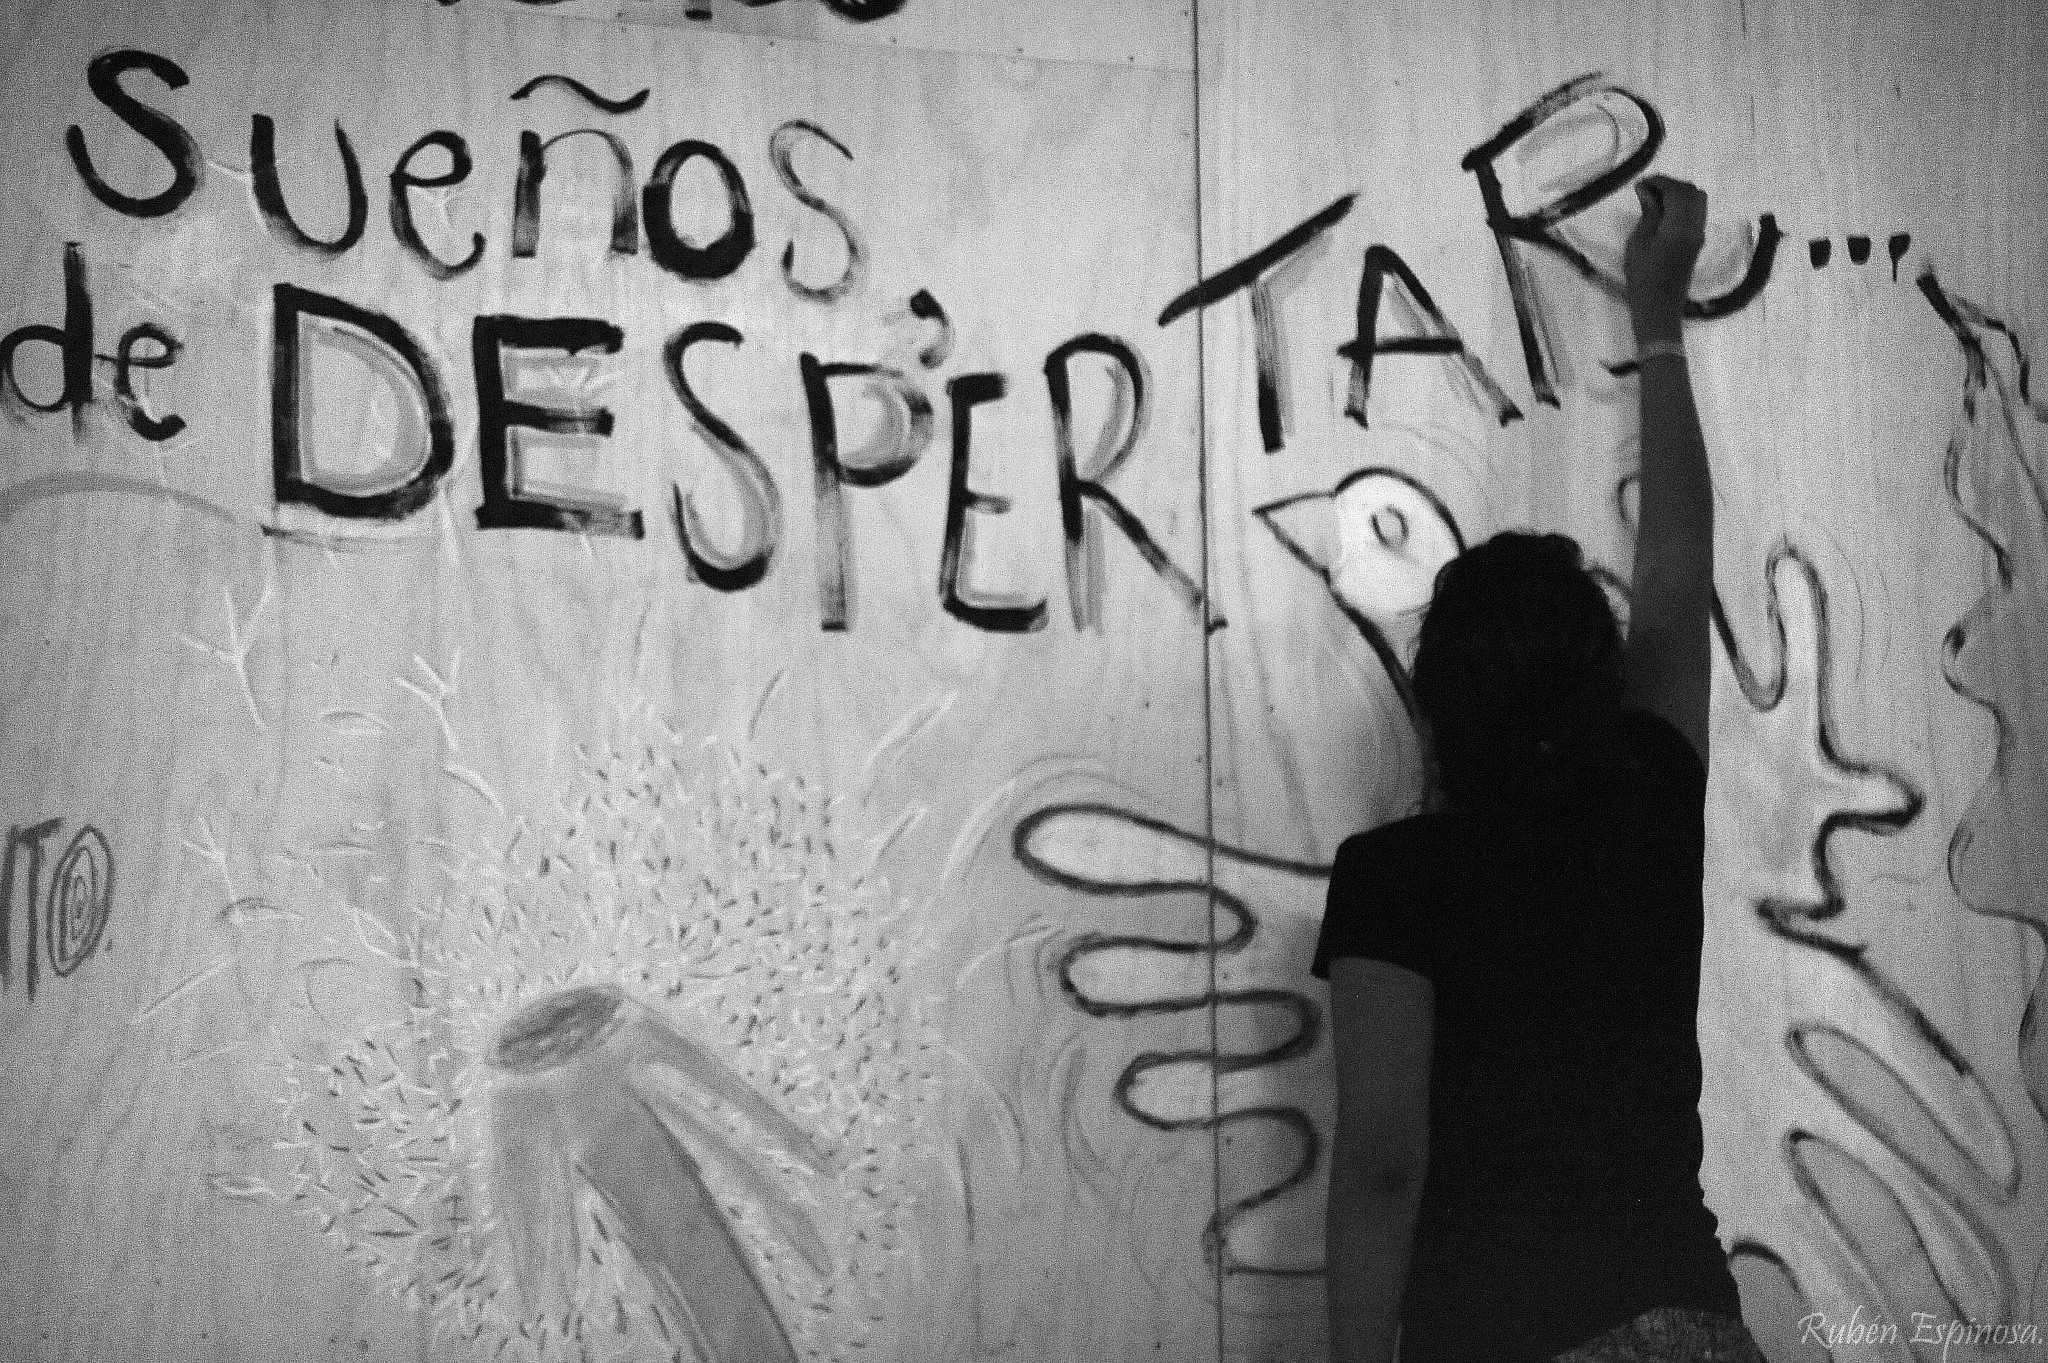 Sueños,
de DESPERTAR
TU...
ITO.
Rubén Espinosa.